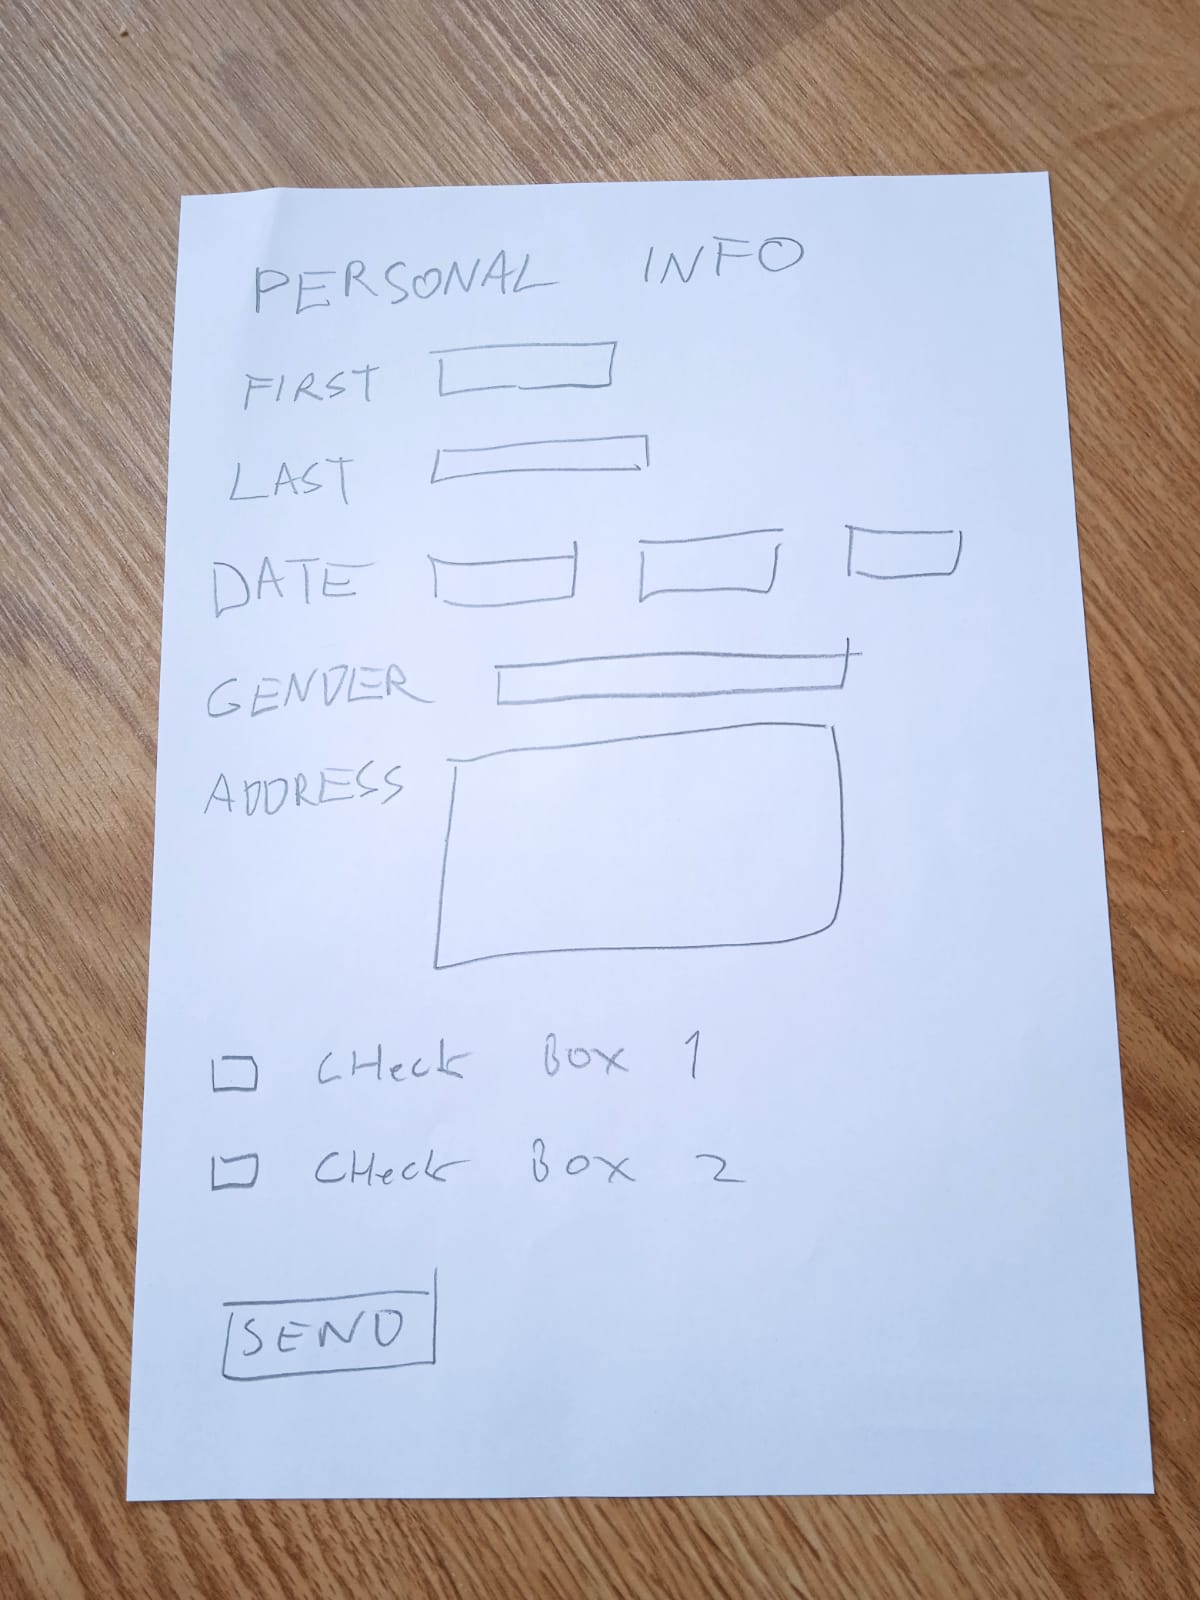 PERSONAL INFO
FIRST
LAST
DATE
GENDER
ADDRESS
CHeck Box 1
CHeck Box 2
SEND